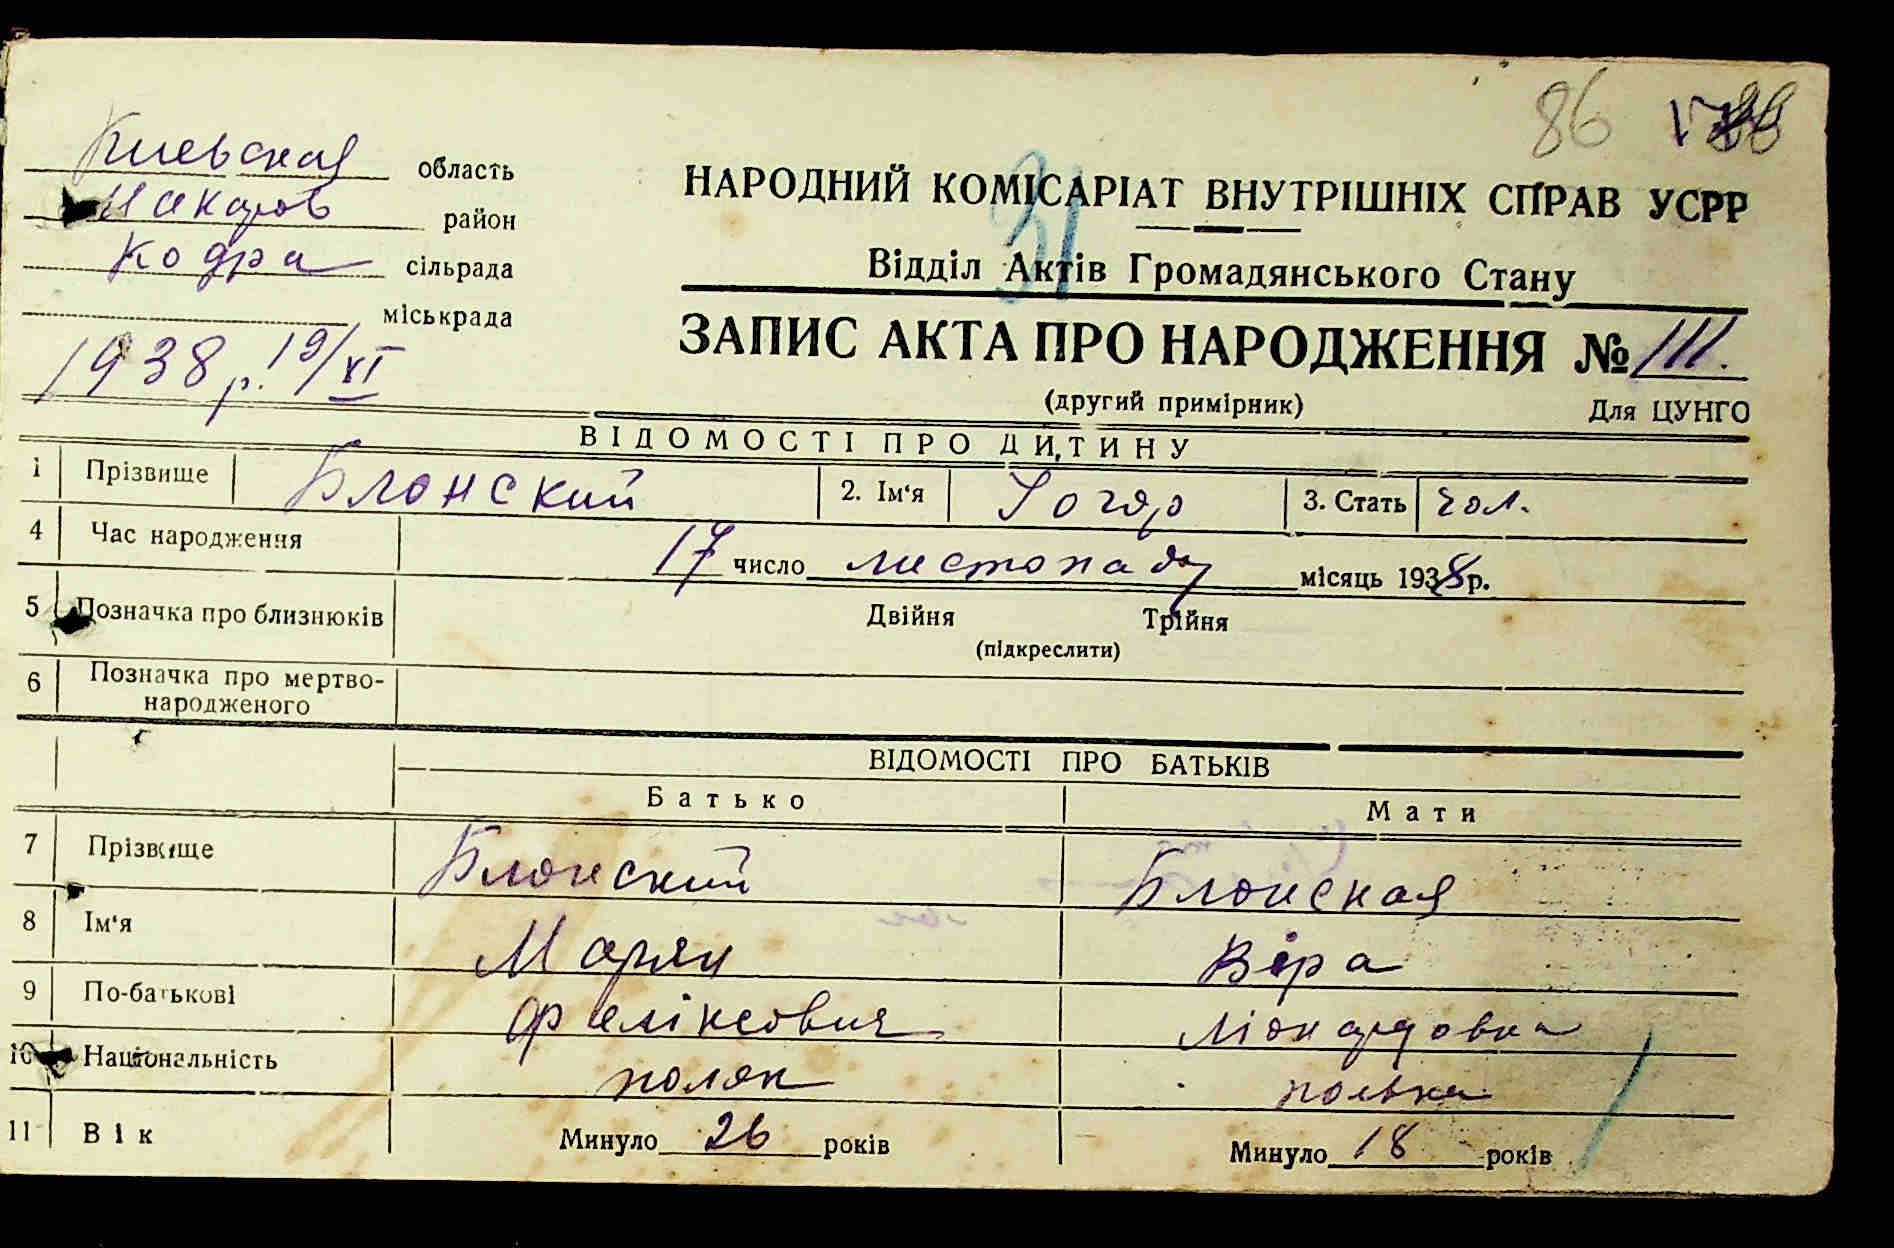 86 88
Киевская область
Макаров район
Кодра сільрада
міськрада
1938 р. 19/XI
31
НАРОДНИЙ КОМІСАРІАТ ВНУТРІШНІХ СПРАВ УСРР
Відділ Актів Громадянського Стану
ЗАПИС АКТА ПРО НАРОДЖЕННЯ № 111.
(другий примірник) Для ЦУНГО
ВІДОМОСТІ ПРО ДИТИНУ
1 Прізвище Блонский 2. Ім‘я 3. Стать чол.
4 Час народження 17 число листопаду місяць 1938 р.
5 Позначка про близнюків Двійня Трійня
(підкреслити)
6 Позначка про мертво-
народженого
ВІДОМОСТІ ПРО БАТЬКІВ
Батько Мати
7 Прізвище Блонский Блонская
8 Ім‘я Марян Віра
9 По-батькові Феліксович Ліонардовна
10 Національність поляк полька
11 Вік Минуло 26 років Минуло 18 років